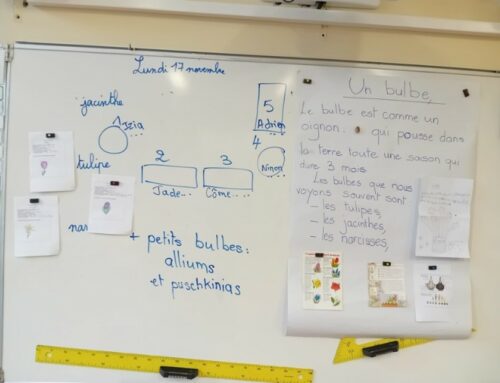 Lundi 17 novembre
jacinthe
1 Izia
tulipe
2
Jade...
3
Côme...
4
Ninon
5
Adrien
+ petits bulbes :
alliums
et puschkinias
Un bulbe,
Le bulbe est comme un
oignon qui pousse dans
la terre toute une saison qui
dure 3 mois.
Les bulbes que nous
voyons souvent sont
– les tulipes,
– les jacinthes,
– les narcisses,